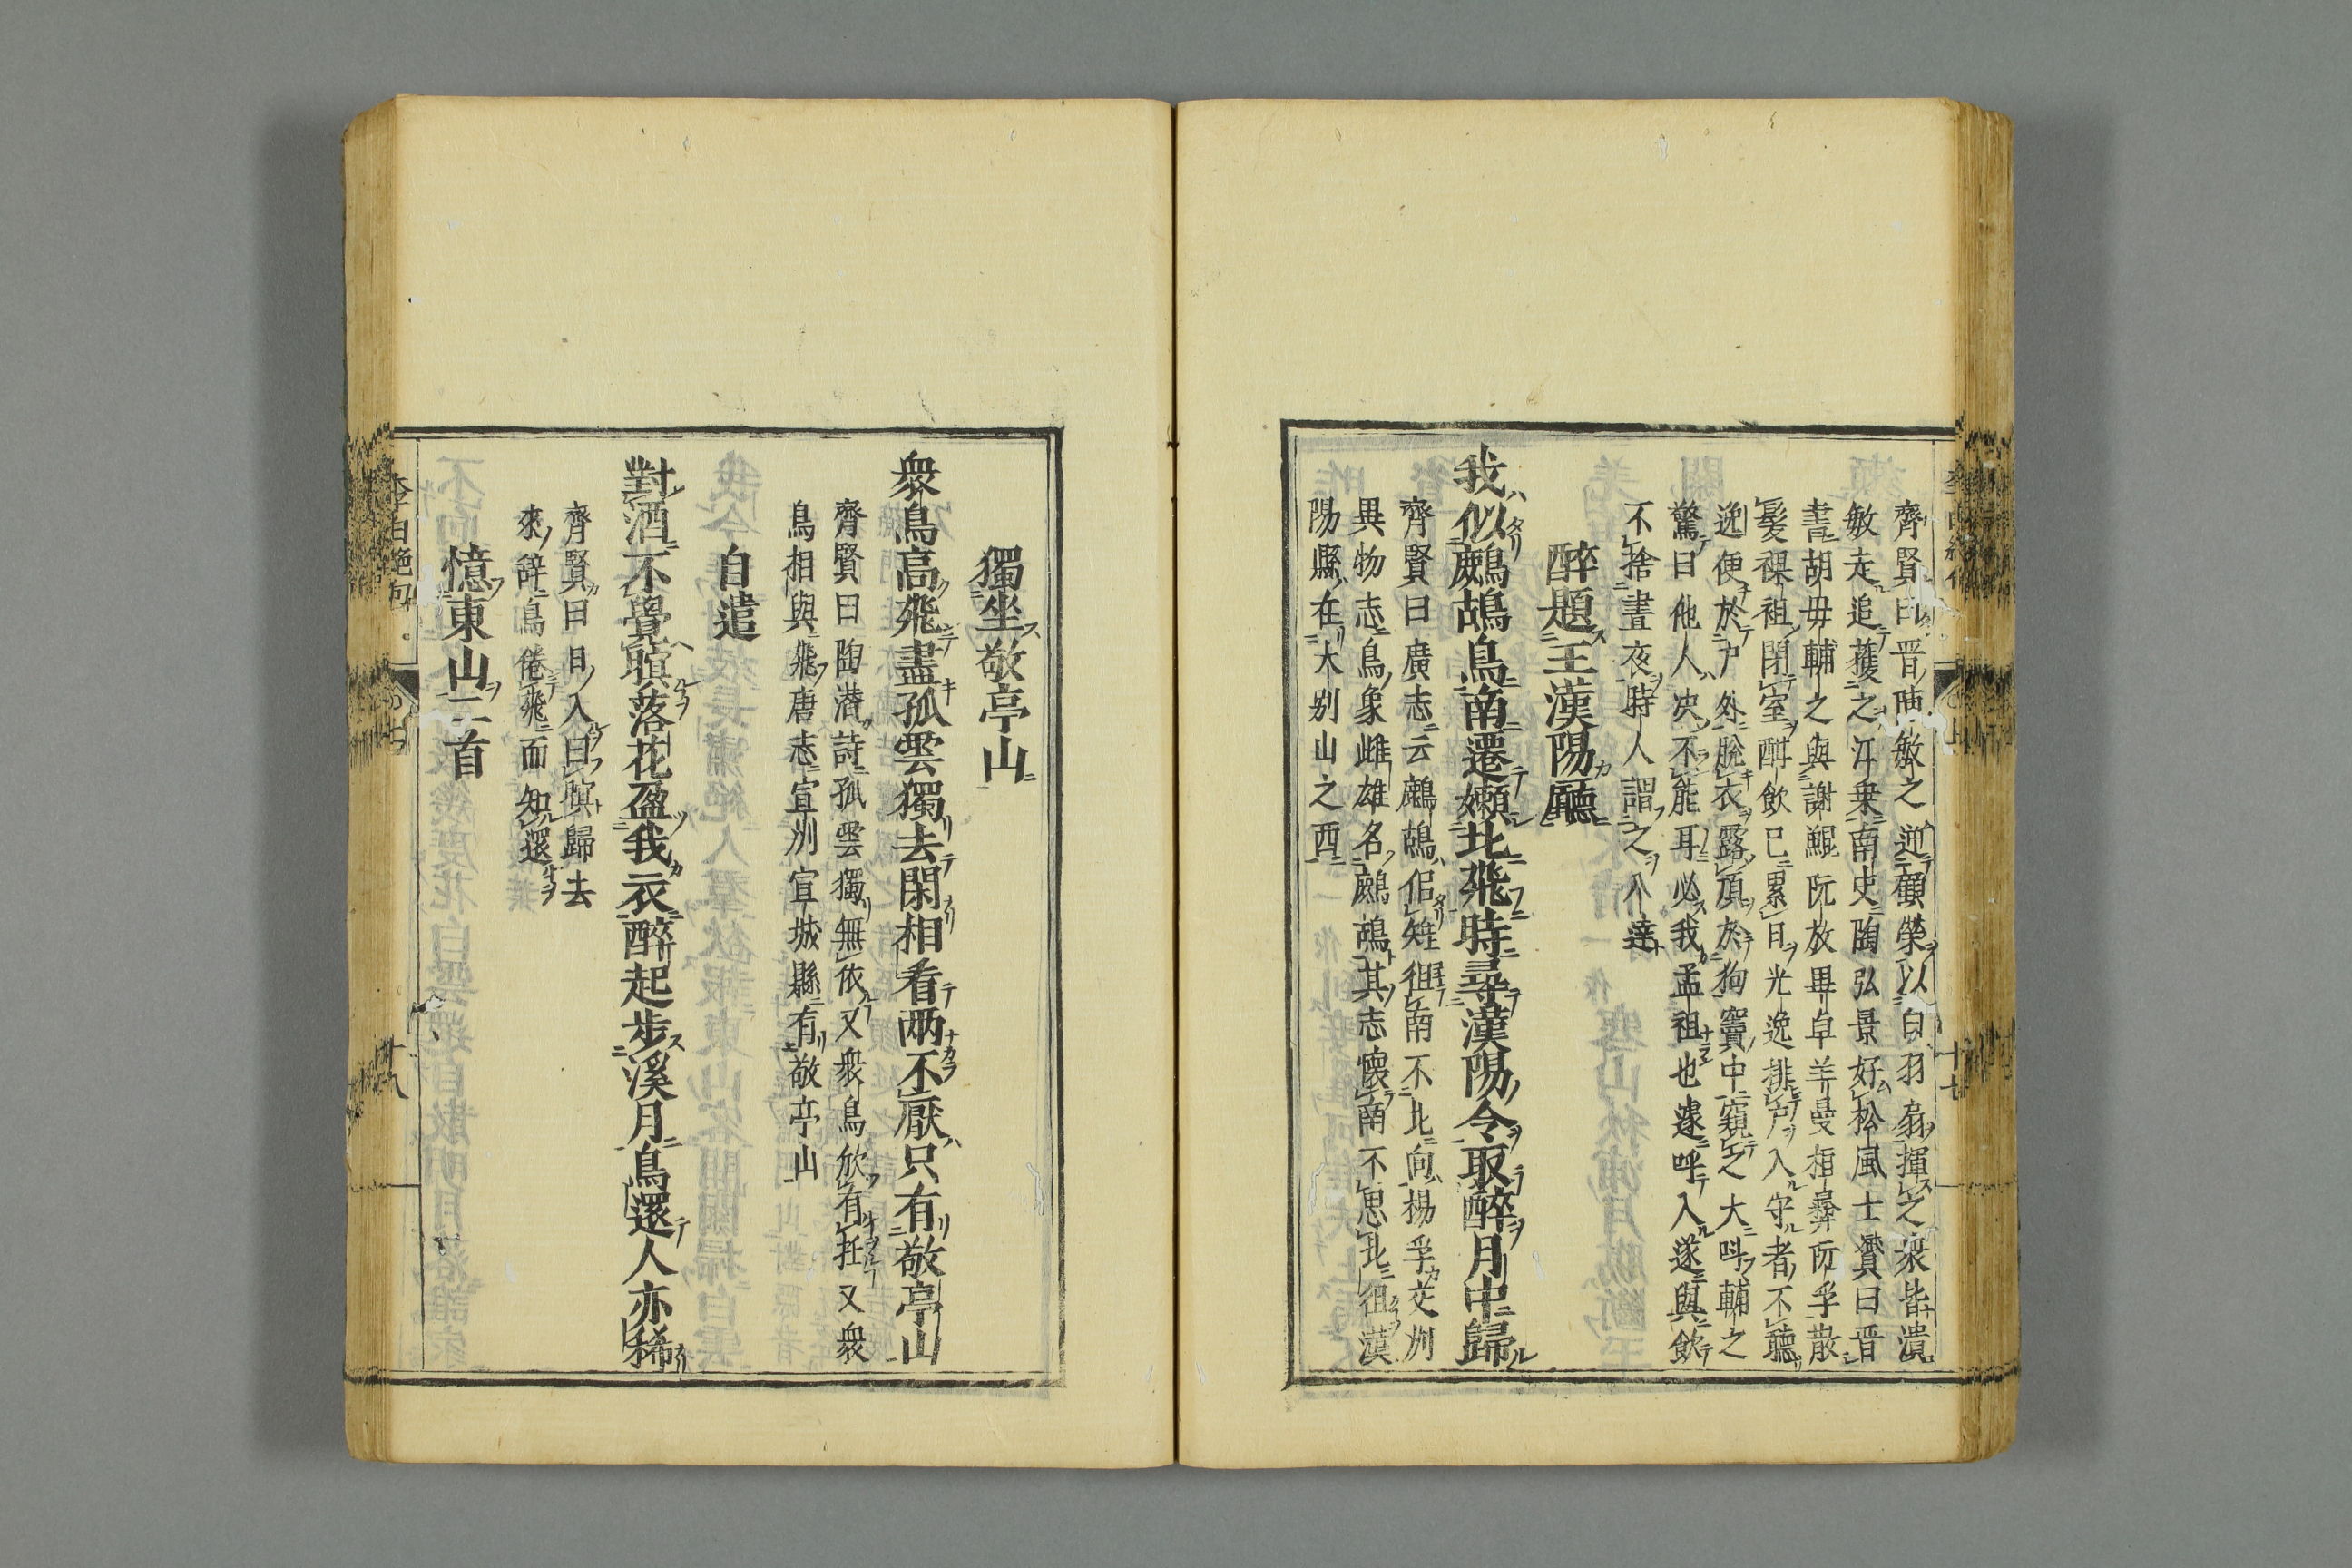 齊賢曰晋陳敏之逆顧榮以白羽扇揮之衆皆潰
敏走追獲之江乗南史陶弘景好松風士贇曰晋
書胡毋輔之與謝鯤阮放畢卓羊曼桓彛阮孚散
髪裸袒閉室酣飲已累日光逸排戸入守者不聽
逸便於戸外脫衣露頂於狗竇中窺之大呌輔之
驚曰他人决不能耳必我孟祖也遽呼入遂與飲
不捨晝夜時人謂之八達
醉題王漢陽廳
我似鷓鴣鳥南遷嬾北飛時尋漢陽令取醉月中歸
齊賢曰廣志云鷓鴣侣雉徂南不北向楊孚交州
異物志鳥象雌雄名鷓鴣其志懷南不思北徂漢
陽縣在大别山之西
十七
獨坐敬亭山
衆鳥高飛盡孤雲獨去閑相看兩不厭只有敬亭山
齊賢曰陶潜詩孤雲獨無依又衆鳥欣有托又衆
鳥相與飛唐志宣州宣城縣有敬亭山
自遣
對酒不覺暝落花盈我衣醉起步溪月鳥還人亦稀
齊賢曰日入曰暝歸去
來辭鳥倦飛而知還
憶東山二首
李白絶句
十八